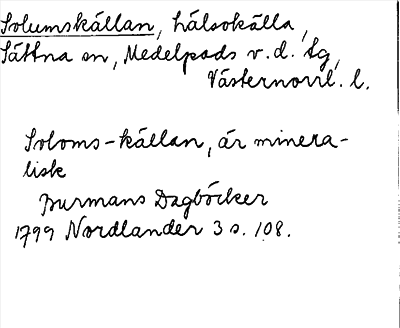 Solumskällan, hälsokälla,
Sättna sn, Medelpads v.d. tg,
Västernorrl. l.
Soloms-källan, är minera-
lisk
Burmans Dagböcker
1799 Nordlander 3 s. 108.